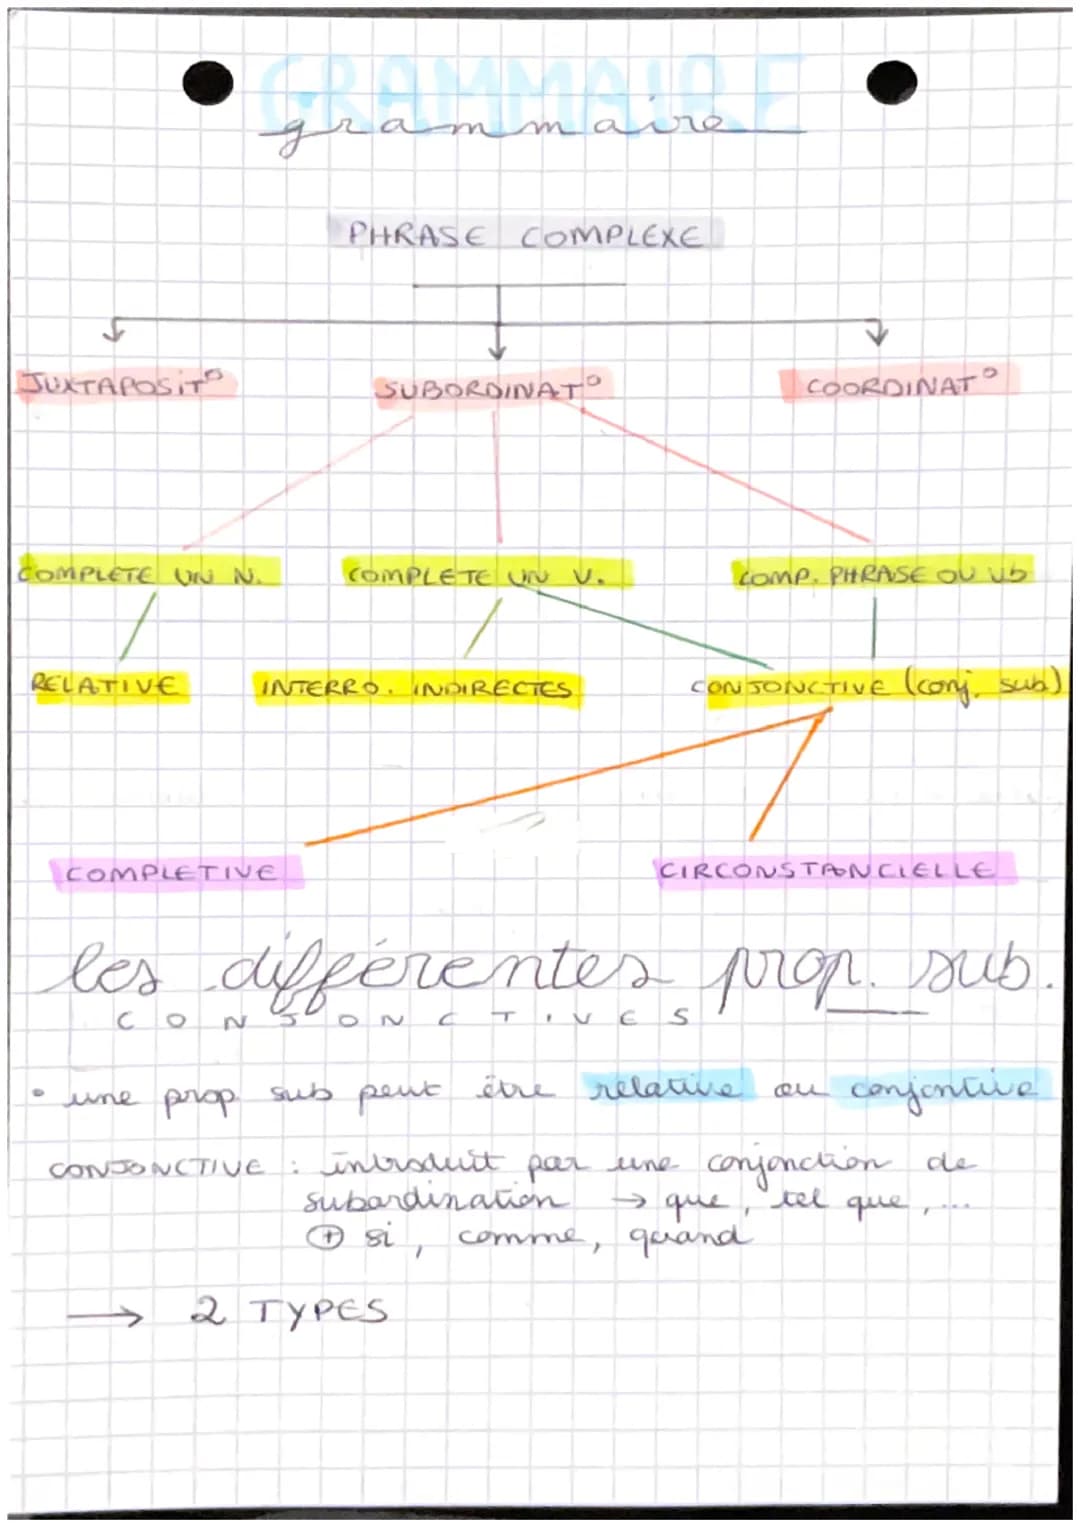 GRAMMAIRE
grammaire
PHRASE COMPLEXE
JUXTAPOSIT° SUBORDINAT° COORDINAT°
COMPLETE UN N. COMPLETE UN V. COMP. PHRASE OU Vb
RELATIVE INTERRO. INDIRECTES CONJONCTIVE (conj. sub)
COMPLETIVE CIRCONSTANCIELLE
les différentes prop. sub.
CONJONCTIVES
• une prop sub peut être relative ou conjontive
CONJONCTIVE : introduit par une conjonction de
subordination → que, tel que, ...
⊕ si, comme, quand
→ 2 TYPES